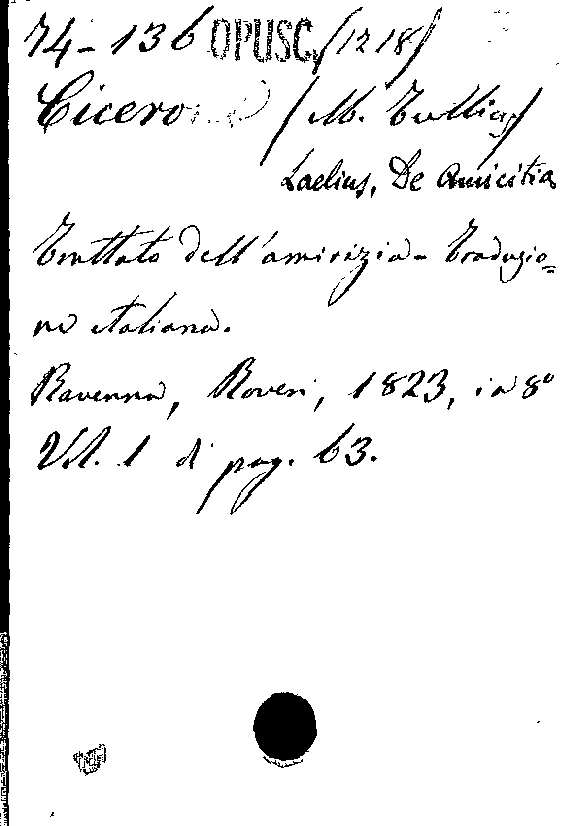 74-136 OPUSC. (1218)
Cicerone (M. Tullio)
Laelius, De Amicitia
Trattato dell'amicizia - Traduzio=
ne italiana.
Ravenna, Roveri, 1823, in 8°
Vol. 1 di pag. 63.